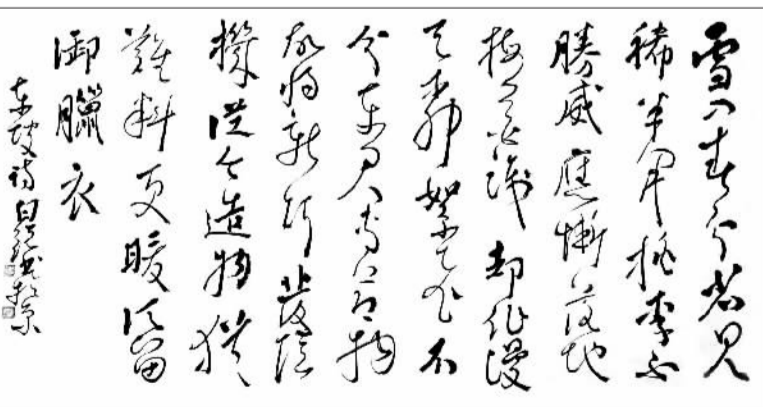 雪入春分省見
稀半開桃李不
勝威應慚落地
梅花識却作漫
天柳絮飛不
分東君專節物
故將新巧發陰
機從今造物猶
難料更暖須留
御臘衣
東坡詩